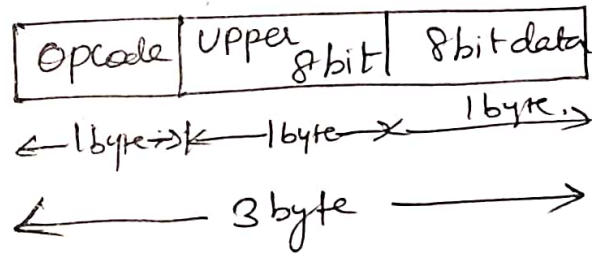 Opcode Upper 8bit 8bit data
1byte 1byte 1byte.
3 byte